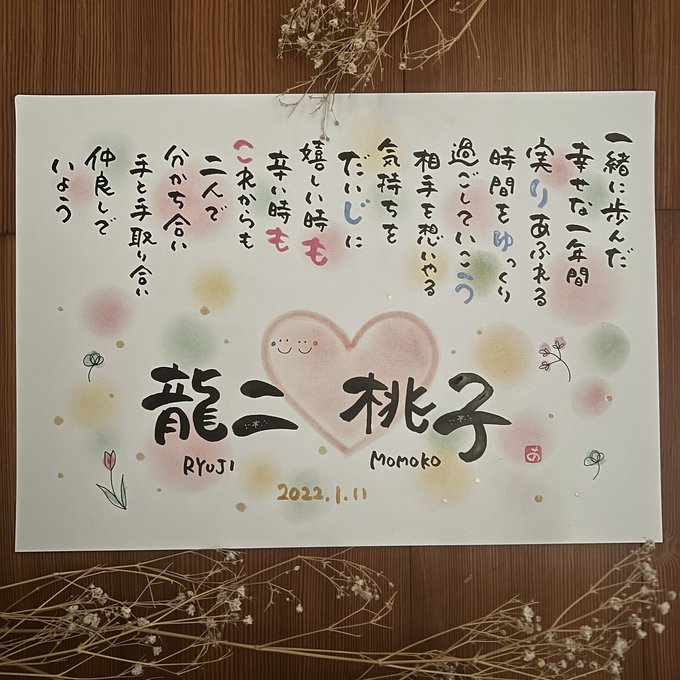 一緒に歩んだ
幸せな一年間
実りあふれる
時間をゆっくり
過ごしていこう
相手を想いやる
気持ちを
だいじに
嬉しい時も
辛い時も
これからも
二人で
分かち合い
手と手取り合い
仲良しで
いよう
龍二 桃子
RYUJI MOMOKO
2022.1.11
お